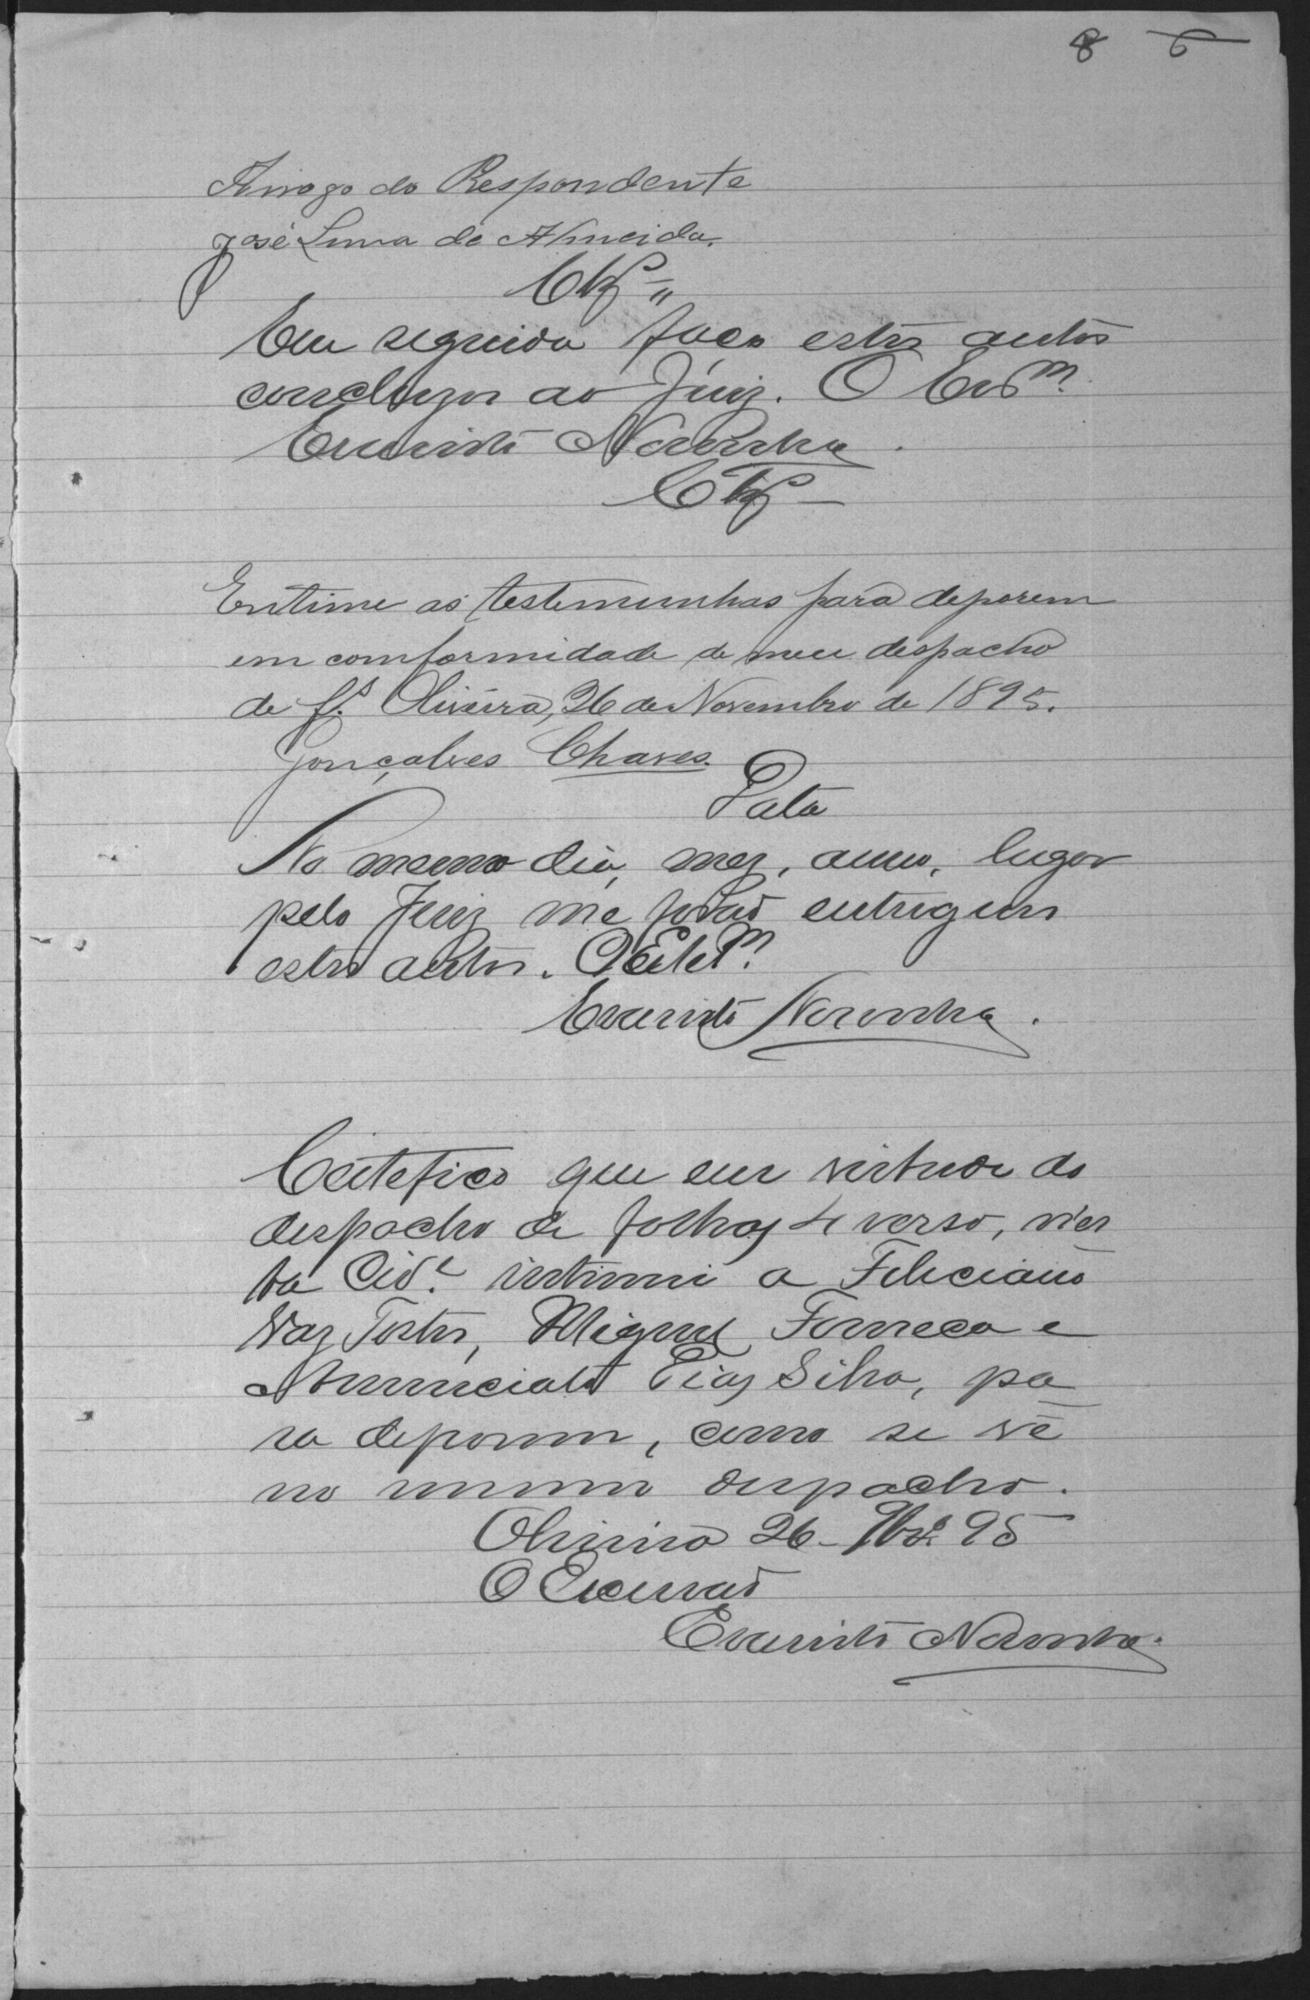 8 6
Arrogo do Respondente
José Lima de Almeida.
Clz
Em seguida faço estes autos
concluzos ao Juiz. O Escr.m
Evaristo Noronha.
Clz
Entime as testemunhas para deporem
em comformidade de meu despacho
de fs. Oliveira, 26 de Novembro de 1895.
Gonçalves Chaves.
Data
No mesmo dia, mez, anno, lugar
pelo Juiz me forão entregues
estes autos. O Escr.m
Evaristo Noronha.
Certefico que em virtude do
despacho de folhas 4 verso, nes
ta Cid.e intimei a Feliciano
Vaz Tostes, Miguel Fonseca e
Annunciato Dias Silva, pa
ra deporem, como se vê
no mesmo despacho.
Oliveira 26 9br.o 95
O Escrivão
Evaristo Noronha.